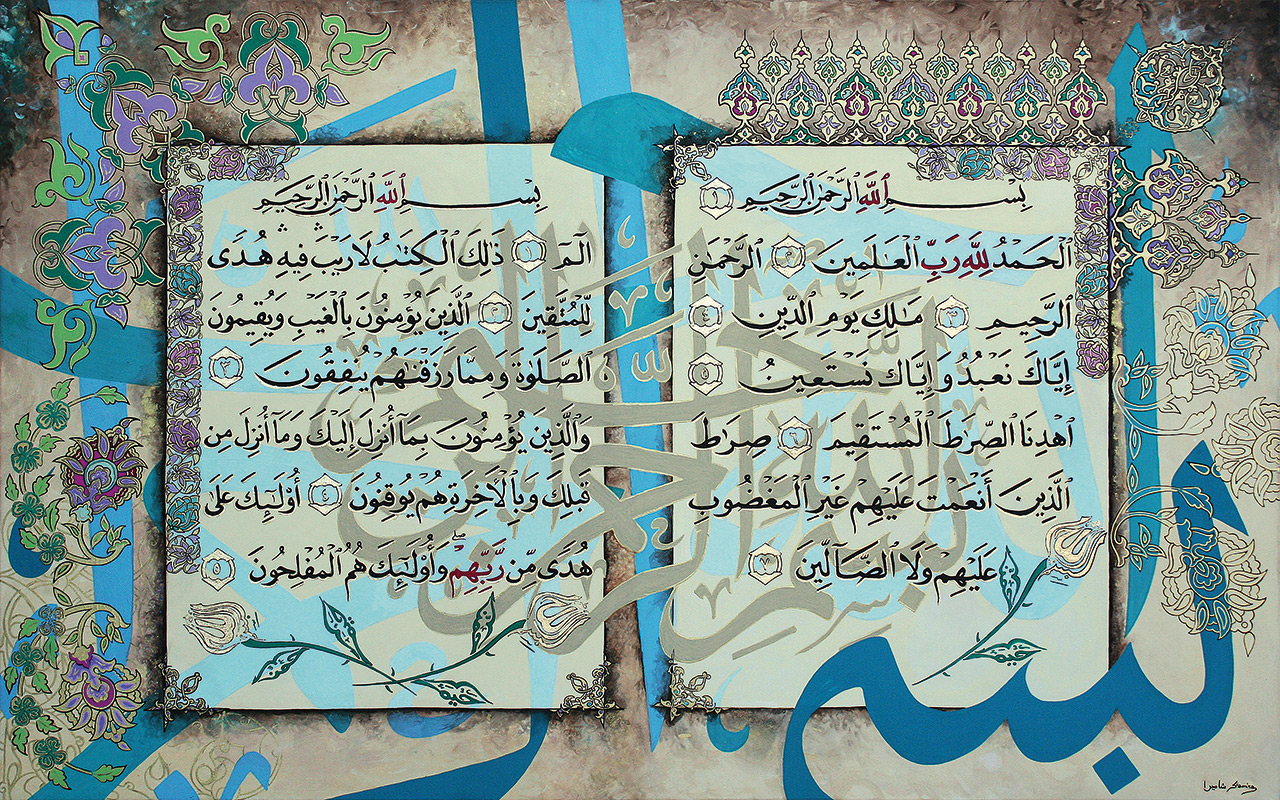 بِسْمِ ٱللَّهِ ٱلرَّحْمَٰنِ ٱلرَّحِيمِ ١
ٱلْحَمْدُ لِلَّهِ رَبِّ ٱلْعَٰلَمِينَ ٢ ٱلرَّحْمَٰنِ
ٱلرَّحِيمِ ٣ مَٰلِكِ يَوْمِ ٱلدِّينِ ٤
إِيَّاكَ نَعْبُدُ وَإِيَّاكَ نَسْتَعِينُ ٥
ٱهْدِنَا ٱلصِّرَٰطَ ٱلْمُسْتَقِيمَ ٦ صِرَٰطَ
ٱلَّذِينَ أَنْعَمْتَ عَلَيْهِمْ غَيْرِ ٱلْمَغْضُوبِ
عَلَيْهِمْ وَلَا ٱلضَّآلِّينَ ٧
بِسْمِ ٱللَّهِ ٱلرَّحْمَٰنِ ٱلرَّحِيمِ
الٓمٓ ١ ذَٰلِكَ ٱلْكِتَٰبُ لَا رَيْبَ فِيهِ هُدًى
لِّلْمُتَّقِينَ ٢ ٱلَّذِينَ يُؤْمِنُونَ بِٱلْغَيْبِ وَيُقِيمُونَ
ٱلصَّلَوٰةَ وَمِمَّا رَزَقْنَٰهُمْ يُنفِقُونَ ٣
وَٱلَّذِينَ يُؤْمِنُونَ بِمَآ أُنزِلَ إِلَيْكَ وَمَآ أُنزِلَ مِن
قَبْلِكَ وَبِٱلْأَخِرَةِ هُمْ يُوقِنُونَ ٤ أُو۟لَٰٓئِكَ عَلَىٰ
هُدًى مِّن رَّبِّهِمْ ۖ وَأُو۟لَٰٓئِكَ هُمُ ٱلْمُفْلِحُونَ ٥
بسم
بسم الله الرحمن الرحيم